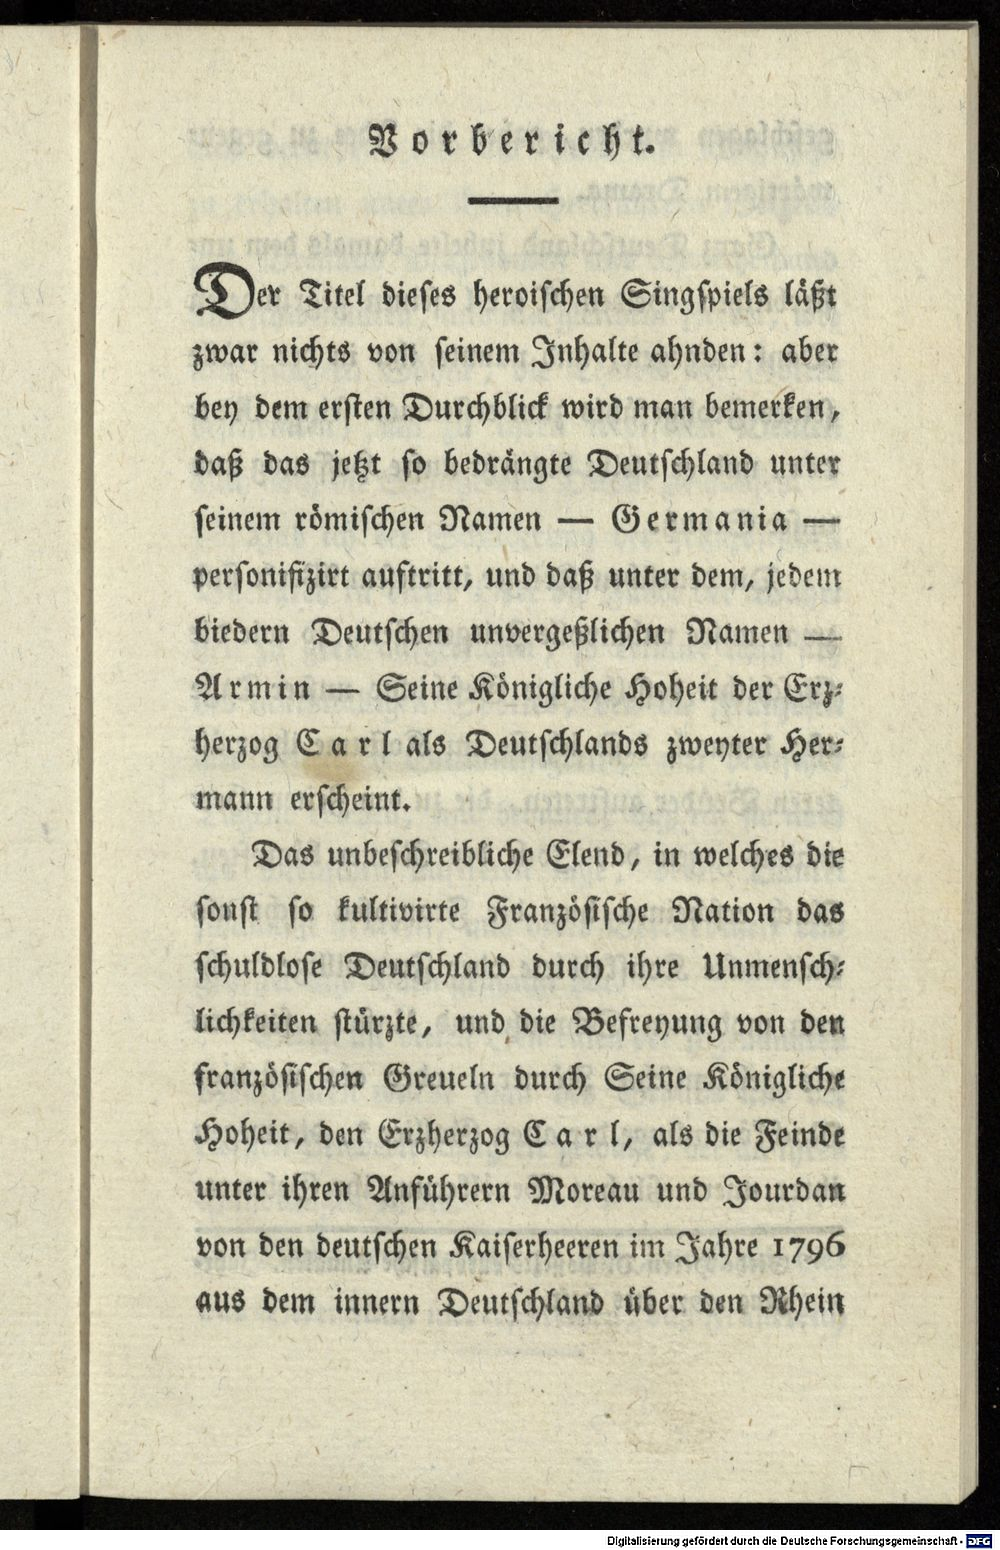 Vorbericht.
Der Titel dieses heroischen Singspiels läßt
zwar nichts von seinem Inhalte ahnden: aber
bey dem ersten Durchblick wird man bemerken,
daß das jetzt so bedrängte Deutschland unter
seinem römischen Namen — Germania —
personifizirt auftritt, und daß unter dem, jedem
biedern Deutschen unvergeßlichen Namen —
Armin — Seine Königliche Hoheit der Erz-
herzog Carl als Deutschlands zweyter Her-
mann erscheint.
Das unbeschreibliche Elend, in welches die
sonst so kultivirte Französische Nation das
schuldlose Deutschland durch ihre Unmensch-
lichkeiten stürzte, und die Befreyung von den
französischen Greueln durch Seine Königliche
Hoheit, den Erzherzog Carl, als die Feinde
unter ihren Anführern Moreau und Jourdan
von den deutschen Kaiserheeren im Jahre 1796
aus dem innern Deutschland über den Rhein
Digitalisierung gefördert durch die Deutsche Forschungsgemeinschaft - DFG